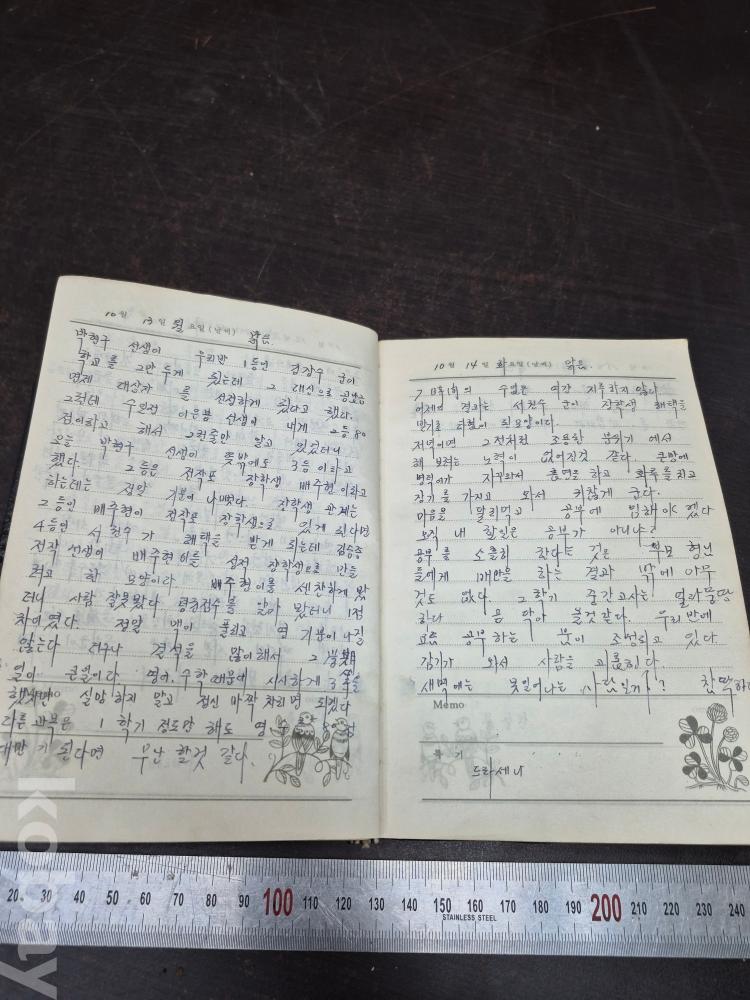 10월 13일 월요일(날씨) 맑음
박현구 선생이 우리반 1등인 김강수 군이
학교를 그만 두게 됬는데 그 대신으로 공납금
면제 대상자를 선정하게 됬다고 했다.
그런데 수원전 이은봉 선생이 내게 2등 80
점이라고 해서 그런줄만 알고 있었더니
오늘 박현구 선생이 뜻밖에도 3등이라고
했다. 2등은 전작포 장학생 배주현이라고
하는데는 정말 기분이 나빴다. 장학생 관계는
2등인 배주현이 전작포 장학생으로 있게 된다면
4등인 서천수가 혜택을 받게 되는데 김응중
전작 선생이 배주현이를 설전 장학생으로 만들
려고 한 모양이라 배주현이를 센찬하게 봤
더니 사람 잘못봤다 평균점수를 알아 봤더니 1점
차이였다. 정말 맥이 풀리고 영 기분이 나질
않는다 더구나 결석을 많이해서 그
일이 큰일이다. 영어, 수학 때문에 시시하게 3등을
했지만 실망하지 말고 정신 바짝 차리면 되겠다
다른과목은 1학기 정도만 해도 영 수
대만 기 된다면 무난 할것 같다.
10월 14일 화요일(날씨) 맑음
7 의 수업은 여간 지루하지 않다
어제의 결과는 서천수 군이 장학생 혜택을
받기로 타협이 되었다.
저녁이면 그전처럼 조용한 분위기에서
해 보려는 노력이 없어진것 같다. 큰방에
병덕이가 자꾸와서 훼면을 하고 화투를 치고
장기를 가지고 와서 귀찮게 군다.
마음을 달리먹고 공부에 임해야 겠다
오직 내 할일은 공부가 아니냐?
공부를 소홀히 찼다는 것은 부모 형님
들에게 1마안을 하는 결과 밖에 아무
것도 없다. 2학기 중간고사는 얼마물땅
하다 음 막아 볼것같다. 우리반에
요즘 공부하는 붐이 조성되고 있다
감기가 와서 사람을 괴롭힌다.
새벽에는 못일어나는 사람있게? 참 딱하
Memo
드라세나
20 30 40 50 60 70 80 90 100 110 120 130 140 150 160 170 180 190 200 210 220 230 240
STAINLESS STEEL
kobay